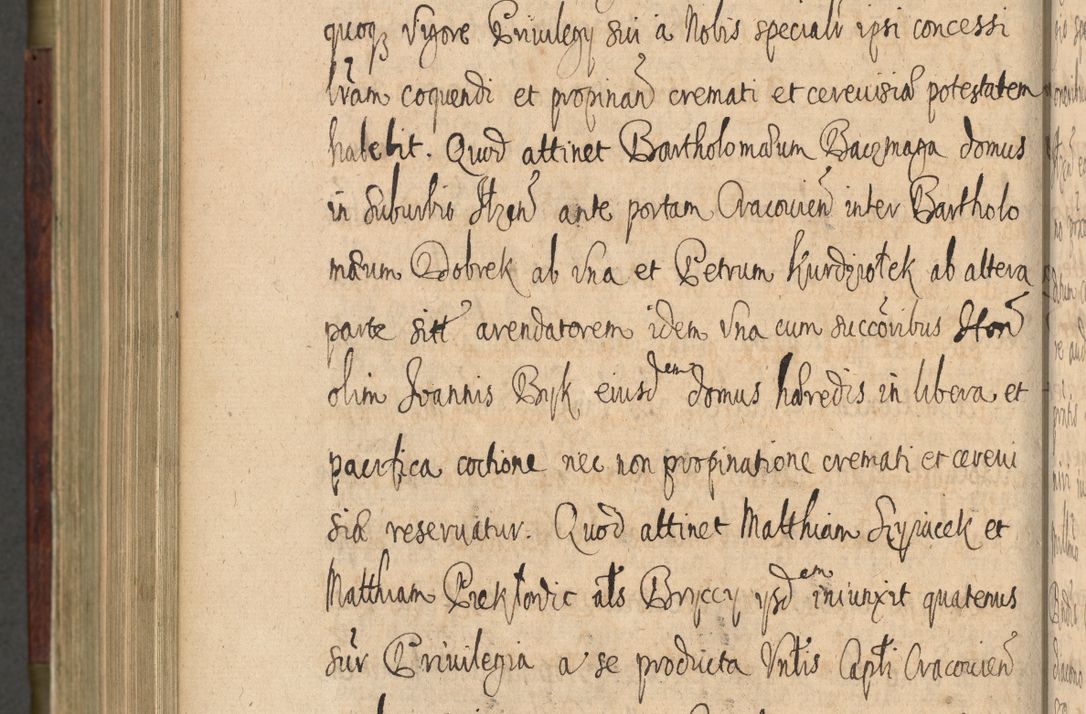 quoqꝫ Vigore Priuilegy sui a Nobis speciali ipsi concessi
lram coquendi et propinand cremati et cereuisiæ potestatem
habebit. Quod attinet Bartholomæum Baczmaga domus
in suburbio Ilzen ante portam Cracouien inter Bartholo
mæum Dobrek ab vna et Petrum Kurdziołek ab altera
parte sitt arendatorem idem vna cum succoribus Hon
olim Joannis Bryk eiusdem domus hæredis in libera et
pacifica coctione nec non propinatione cremati et cereui
siæ reseruatur. Quod attinet Matthiam Szyniacek et
Matthiam Piekłordic als Bryccy ysdem iniunxit quatenus
sur Priuilegia a se producta Vntis Capti Cracouien